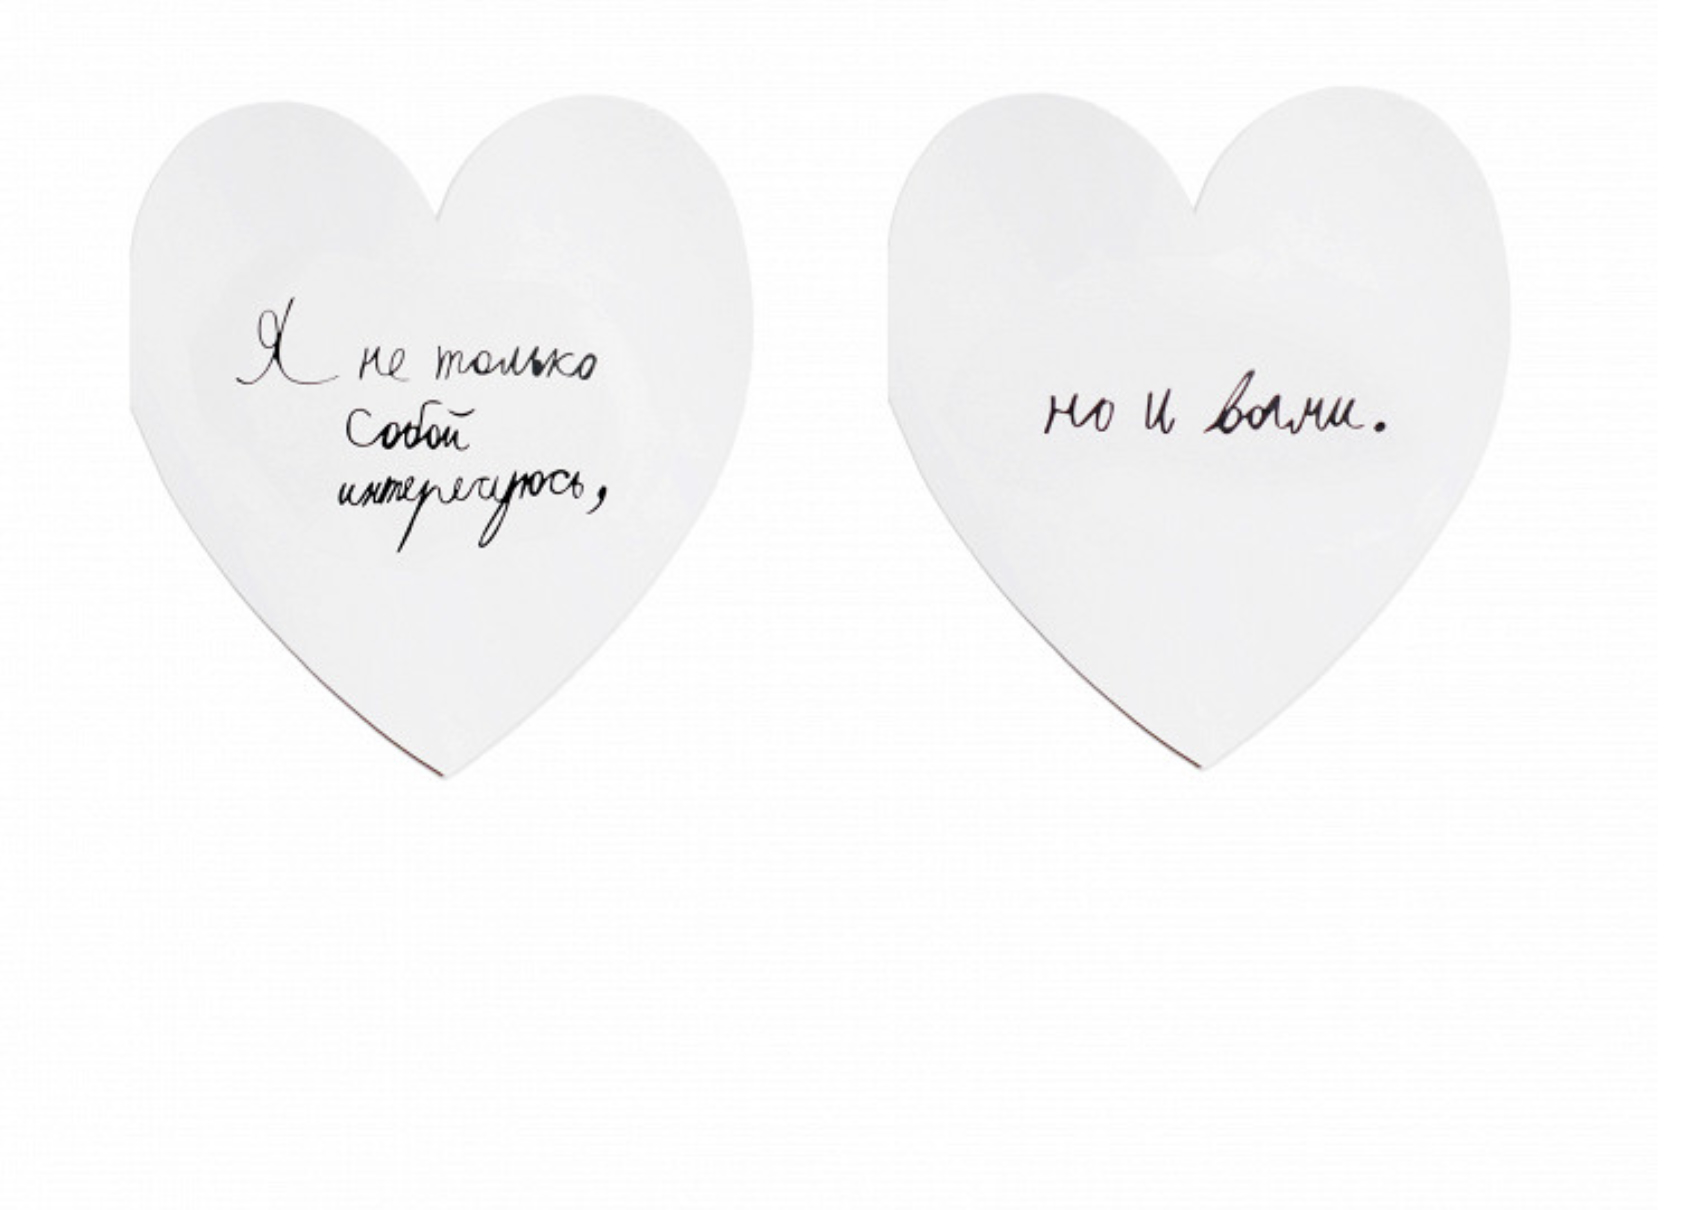 Я не только
собой
интересуюсь,
но и вами.